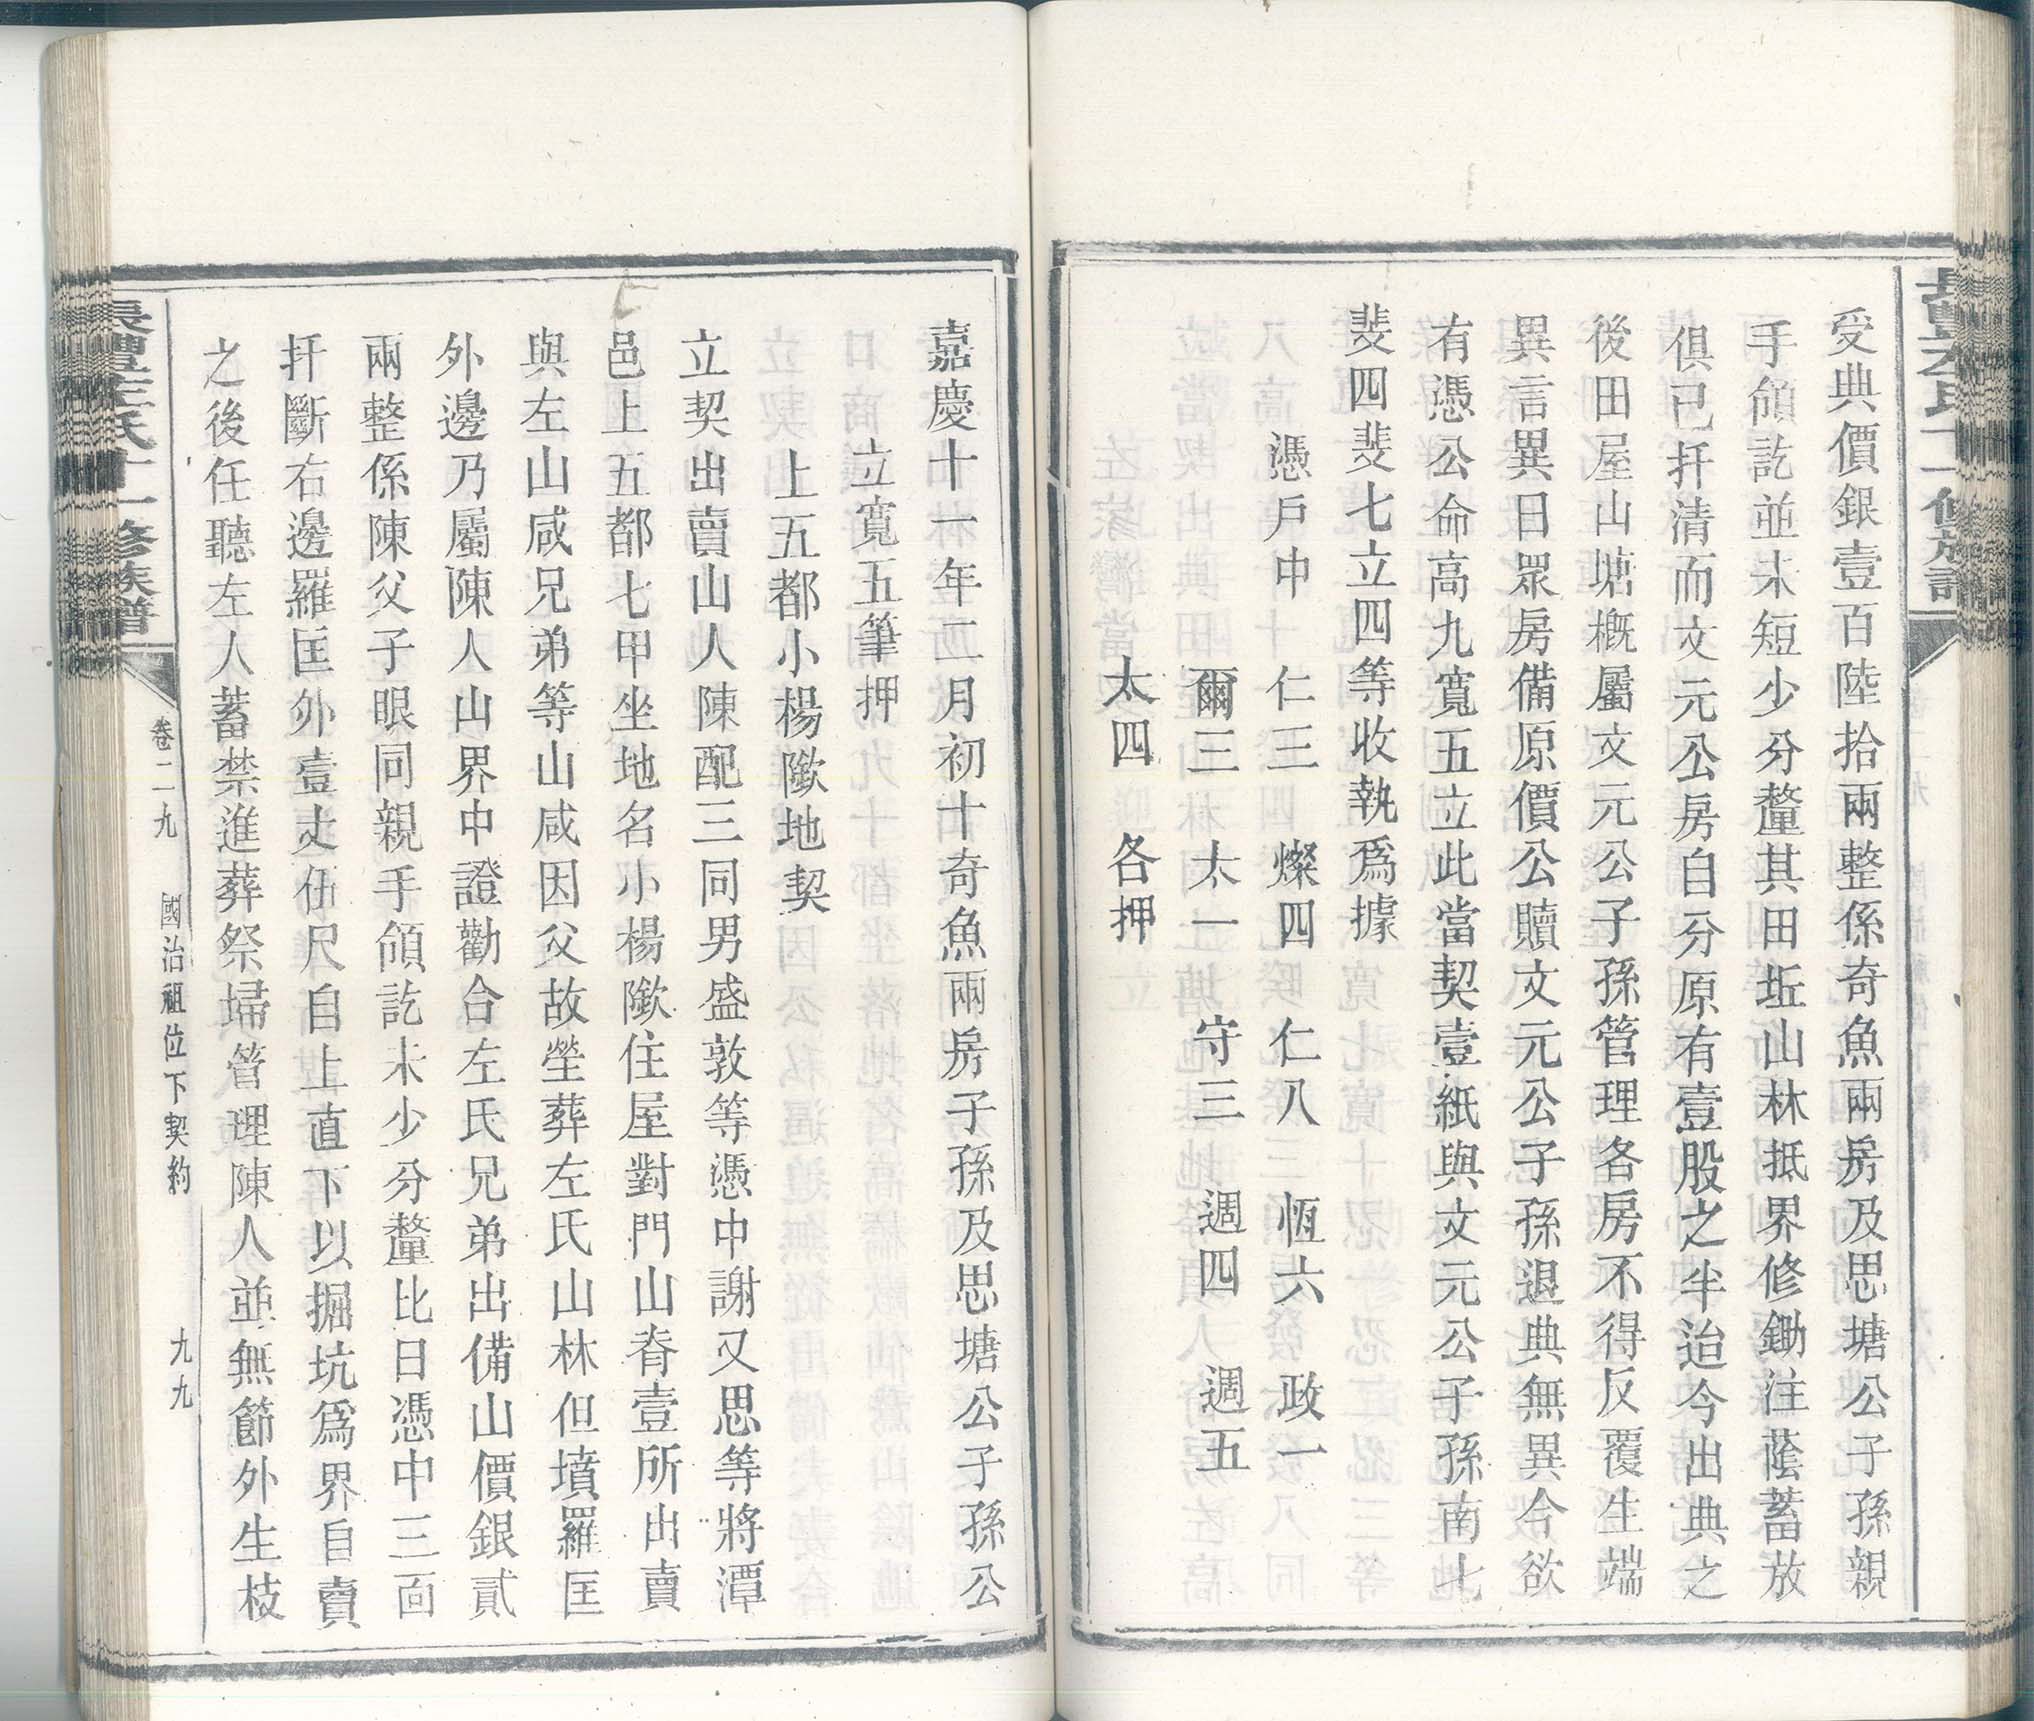 受典價銀壹百陸拾兩整係奇魚兩房及思塘公子孫親
手領訖並未短少分釐其田坵山林抵界修鋤注蔭蓄放
俱已扦清而文元公房自分原有壹股之半迨今出典之
後田屋山塘概屬文元公子孫管理各房不得反覆生端
異言異日眾房備原價公贖文元公子孫退典無異今欲
有憑公命高九寬五立此當契壹紙與文元公子孫南七
斐四斐七立四等收執爲據
憑戶中 仁三 燦四 仁八 恆六 政一
爾三 太一 守三 週四 週五
太四 各押
嘉慶十一年二月初十奇魚兩房子孫及思塘公子孫公
立寬五筆押
上五都小楊墘地契
立契出賣山人陳配三同男盛敦等憑中謝又思等將潭
邑上五都七甲坐地名小楊墘住屋對門山脊壹所出賣
與左山咸兄弟等山咸因父故塋葬左氏山林但墳羅匡
外邊乃屬陳人山界中證勸合左氏兄弟出備山價銀貳
兩整係陳父子眼同親手領訖未少分釐比日憑中三面
扦斷右邊羅匡外壹丈伍尺自上直下以掘坑爲界自賣
之後任聽左人蓄禁進葬祭掃管理陳人並無節外生枝
長豐左氏十一修族譜
卷二九 國治祖位下契約 九九